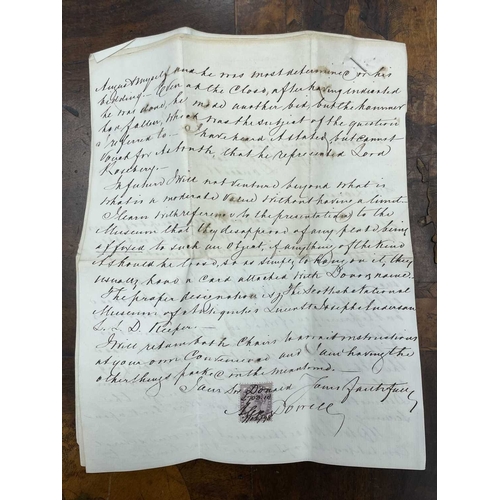 and myself and he was most determined in his
bidding - Even at the Close, after having indicated
he was done, he made another bid, but the hammer
had fallen, which was the subject of the question
I referred to - I have heard it stated, but cannot
vouch for its truth, that he represented Lord
Rosebery -
In future I will not venture beyond what is
what is a moderate value without having a limit
I learn with reference to the presentation to the
Museum that they disapprove of any plate being
affixed to such an object, if anything of the kind
it should be loose, so as simply to hang on it, they
usually have a card attached with Donor's name
The proper designation is The Scottish National
Museum of Antiquities Joseph Anderson
L.L.D. Keeper -
I will retain the Chairs to await instructions
at your own Convenience and am having the
other things packed in the meantime -
I am Sir Donald Yours faithfully
Dowell